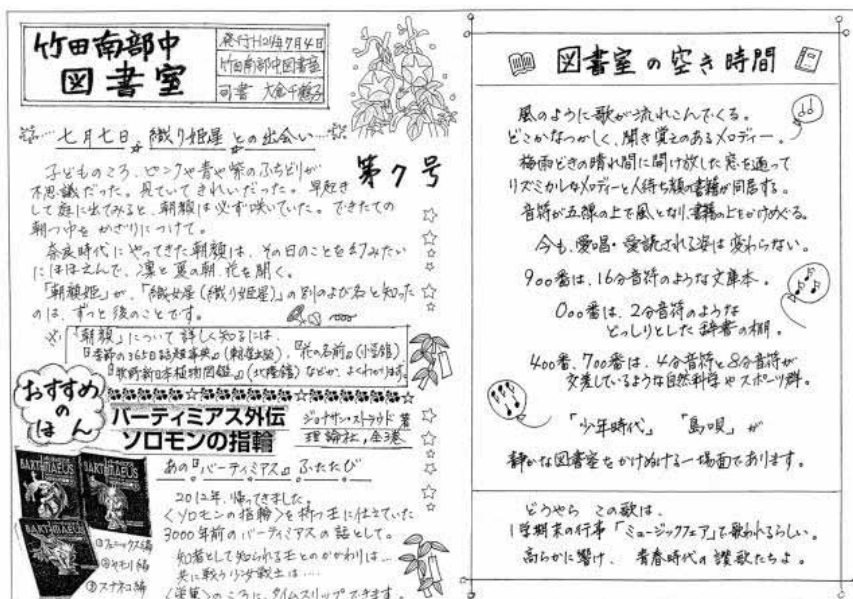 竹田南部中
図書室
発行H24年7月4日
竹田南部中図書室
司書 大倉千鶴子
七月七日、織り姫星との出会い…
第7号
子どものころ、ピンクや青や紫のふちどりが
不思議だった。見ていてきれいだった。早起き
して庭に出てみると、朝顔は必ず咲いていた。できたての
朝つゆを かざりにつけて。
奈良時代にやってきた朝顔は、その日のことを幻みたい
にほほえんで、凛と夏の朝、花を開く。
「朝顔姫」が、「織女星(織り姫星)」の別のよび名と知った
のは、ずっと後のことです。
※「朝顔」について詳しく知るには、
『季節の365日話題事典』(東京堂出版)、『花の名前』(小学館)
『牧野新日本植物図鑑』(北隆館)などが、よくわかります。
おすすめ
の
ほん
バーティミアス外伝
ソロモンの指輪
ジョナサン・ストラウド 著
理論社，全3巻
あの『バーティミアス』ふたたび
2012年、帰ってきました。
〈ソロモンの指輪〉を持つ王に仕えていた
3000年前のバーティミアスの話として。
知者として知られる王とのかかわりは…
共に戦う少女戦士は……
のころに、タイムスリップできます。
BARTIMAEUS
BARTIMAEUS
BARTIMAEUS
①フェニックス編
②ヤモリ編
③スナネコ編
図書室の空き時間
風のように歌が流れこんでくる。
どこかなつかしく、聞き覚えのあるメロディー。
梅雨どきの晴れ間に開け放した窓を通って
リズミカルなメロディーと人待ち顔の書籍が同居する。
音符が五線の上で風となり、書籍の上をかけめぐる。
今も、愛唱・愛読される姿は変わらない。
900番は、16分音符のような文庫本。
000番は、2分音符のような
どっしりとした辞書の棚。
400番、700番は、4分音符と8分音符が
交差しているような自然科学やスポーツ群。
「少年時代」 「島唄」が
静かな図書室をかけぬける一場面であります。
どうやら この歌は、
1学期末の行事「ミュージックフェア」で歌われるらしい。
高らかに響け、青春時代の讃歌たちよ。